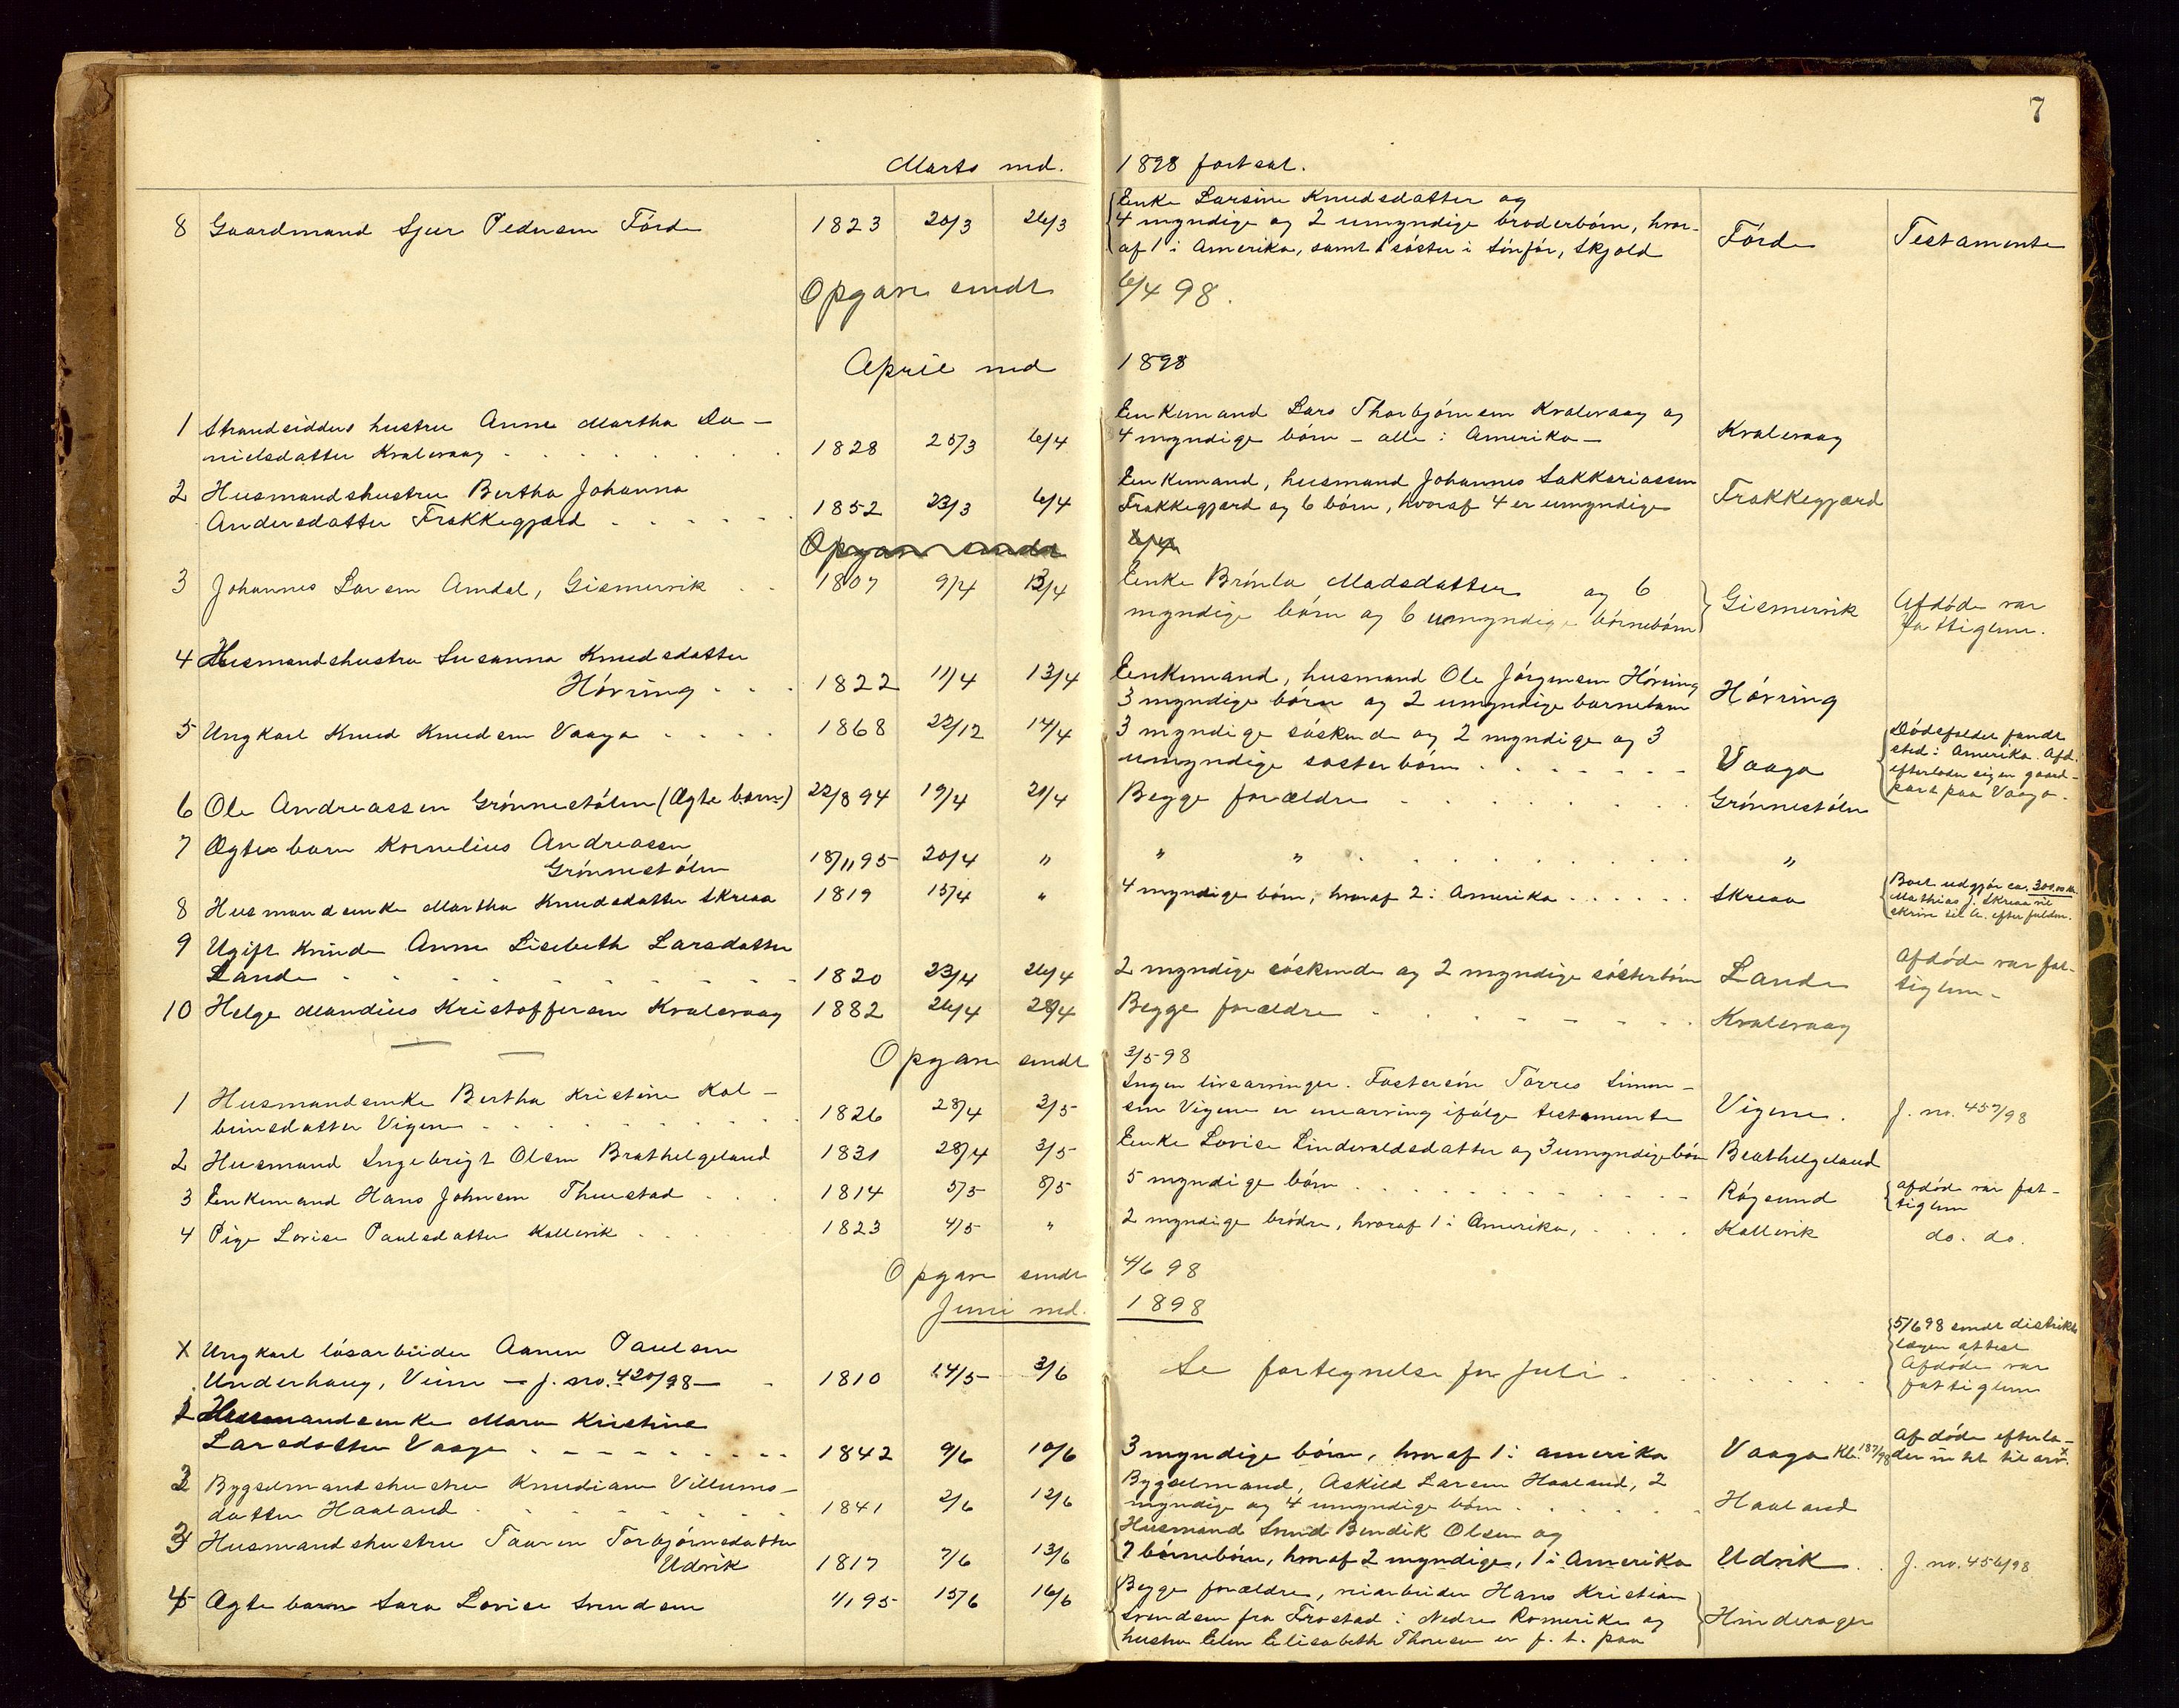 7
Marts md. 1898 fortsat.
8 Gaardmand Sjur Pedersen Förde 1823 20/3 26/3 Enke Larsine Knudsdatter og
4 myndige og 2 umyndige broderbörn, hvor-
af 1 i Amerika, samt 1 söster i Sönför, Skjold Förde Testamente
Opgave sendt 6/4 98.
April md 1898
1 Strandsidders hustru Anne Martha Da-
nielsdatter Kvalevaag 1828 25/3 6/4 Enkemand Lars Thorbjörnsen Kvalevaag og
4 myndige börn - alle i Amerika - Kvalevaag
2 Husmandshustru Bertha Johanna
Andersdatter Frakkegjærd 1852 23/3 6/4 Enkemand, husmand Johannes Sakkariassen
Frakkegjærd og 6 börn, hvoraf 4 er umyndige Frakkegjærd
Opgave sendt
3 Johannes Larsen Amdal, Gismervik 1807 9/4 13/4 Enke Brönla Madsdatter og 6
myndige börn og 6 umyndige börnebörn Gismervik Afdöde var
fattiglem.
4 Husmandshustru Susanna Knudsdatter
Hövring 1822 11/4 13/4 Enkemand, husmand Ole Jörgensen Hövring
3 myndige börn og 2 umyndige barnebarn Hövring
5 Ungkarl Knud Knudsen Vaaga 1868 22/12 14/4 3 myndige söskende og 2 myndige og 3
umyndige sösterbörn Vaaga Dödsfaldet fandt
sted i Amerika. Afd.
efterlader sig en gaard-
part paa Vaaga.
6 Ole Andreassen Grönnestölen (Ægte barn) 22/8 94 19/4 20/4 Begge forældre Grönnestölen
7 Ægte barn Kornelius Andreasen
Grönnestölen 18/11 95 20/4 " " " "
8 Husmandsenke Martha Knudsdatter Skreaa 1819 15/4 " 4 myndige börn, hvoraf 2 i Amerika Skreaa Boet udgjör ca. 300.00 kr
Mathias J. Skreaa vil
skrive til A. efter fuldm.
9 Ugift kvinde Anne Lisebeth Larsdatter
Lande 1820 23/4 26/4 2 myndige söskende og 2 myndige sösterbörn Lande Afdöde var fat-
tiglem.
10 Helge Mandius Kristoffersen Kvalevaag 1882 26/4 28/4 Begge forældre Kvalevaag
Opgave sendt 3/5 98
1 Husmandsenke Bertha Kristine Kol-
beinsdatter Vigene 1826 28/4 3/5 Ingen livsarvinger. Fostersön Torres Simon-
sen Vigene er enearving ifölge testamente Vigene. J. no. 457/98
2 Husmand Ingebrigt Olsen Brathelgeland 1831 28/4 3/5 Enke Lovise Lindevaldsdatter og 3 umyndige börn Brathelgeland
3 Enkemand Hans Johnsen Thustad 1814 5/5 8/5 5 myndige börn Rögsund afdöde var fat-
tiglem
4 Pige Lovise Paulsdatter Kallevik 1823 4/5 " 2 myndige brödre, hvoraf 1 i Amerika, Kallevik do. do.
Opgave sendt 4/6 98
Juni md. 1898
X Ungkarl lösarbeider Aanen Paulsen
Underhaug, Veim - J. no. 420/98 - 1810 14/5 3/6 Se fortegnelse for Juli. 5/6 98 sendt distrikts
lægen attest
Afdöde var
fattiglem
1 Husmandsenke Maren Kristine
Larsdatter Vaage 1842 9/6 10/6 3 myndige börn, hvoraf 1 i amerika Vaaga Kb. 187/98 Afdöde efterla-
der intet til arv. x
2 Bygselmandshustru Knudiane Villums-
datter Haaland 1841 2/6 12/6 Bygselmand, Askild Larsen Haaland, 2
myndige og 4 umyndige börn Haaland
3 Husmandshustru Taaren Torbjörnsdatter
Udvik 1817 7/6 13/6 Husmand Svend Bendik Olsen og
7 börnebörn, hvoraf 2 myndige, 1 i Amerika Udvik J. no. 456/98
4 Ægte barn Sara Lovise Svendsen 1/1 95 15/6 16/6 Begge forældre, veiarbeider Hans Kristian
Svendsen fra Frostad i Nedre Romerike og
hustru Elen Elisabeth Thoresen er f. t. paa Hinderager